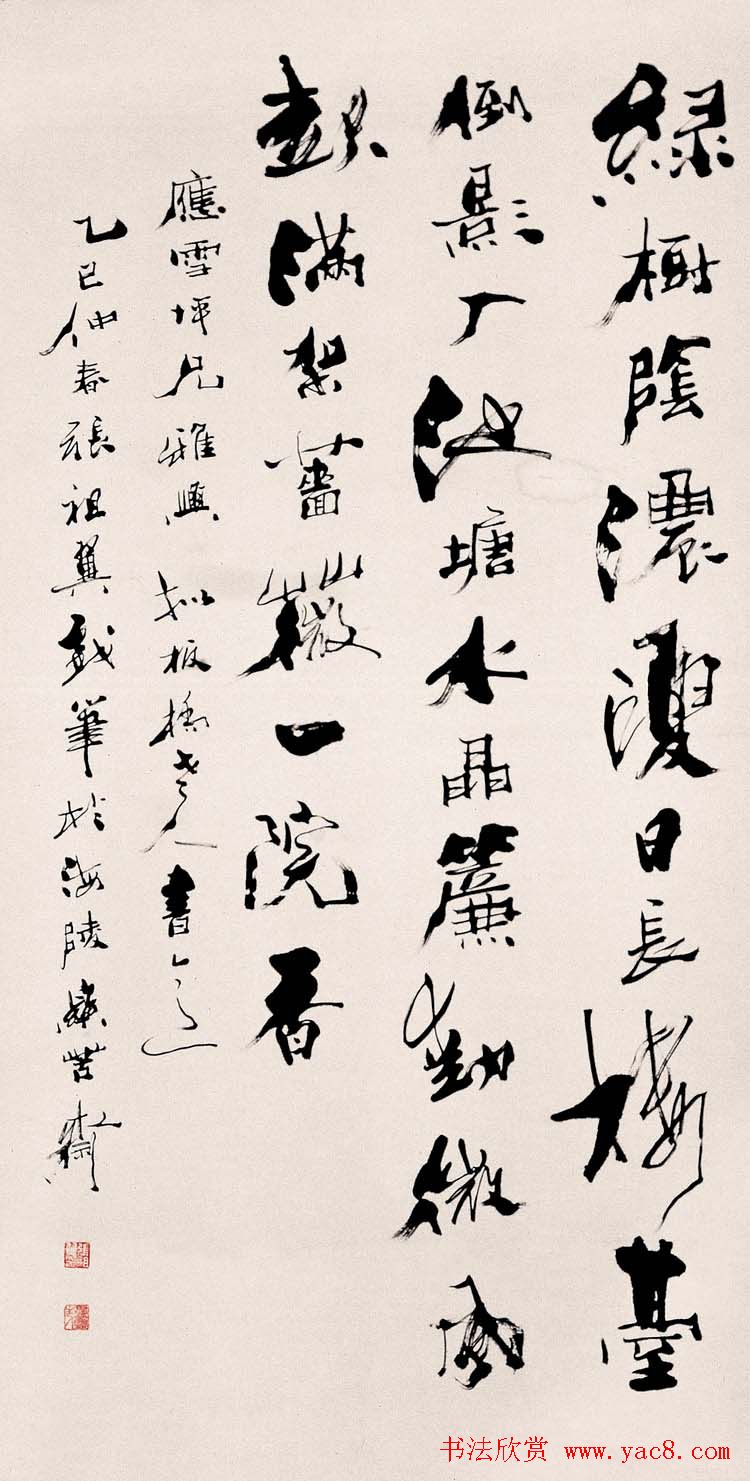 綠樹陰濃夏日長樓臺
倒影入池塘水晶簾動微風
起滿架薔薇一院香
應雪坪兄雅興 拟板橋老人書之意
乙巳仲春張祖翼戲筆於海陵苦齋
书法欣赏 www.yac8.com